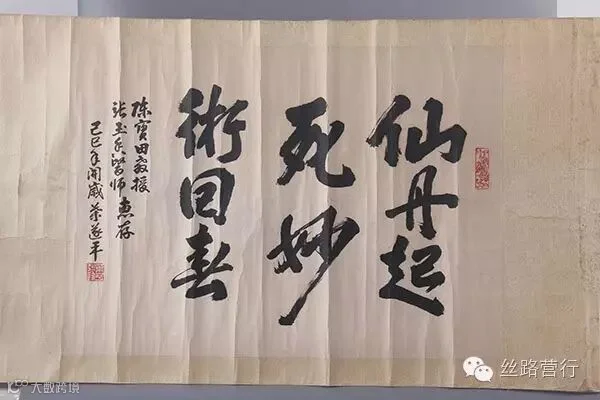 仙丹起
死妙
術回春
陈寶田教授
张玉香醫师惠存
己巳年开歲 蔡遂平
丝路营行
大数跨境